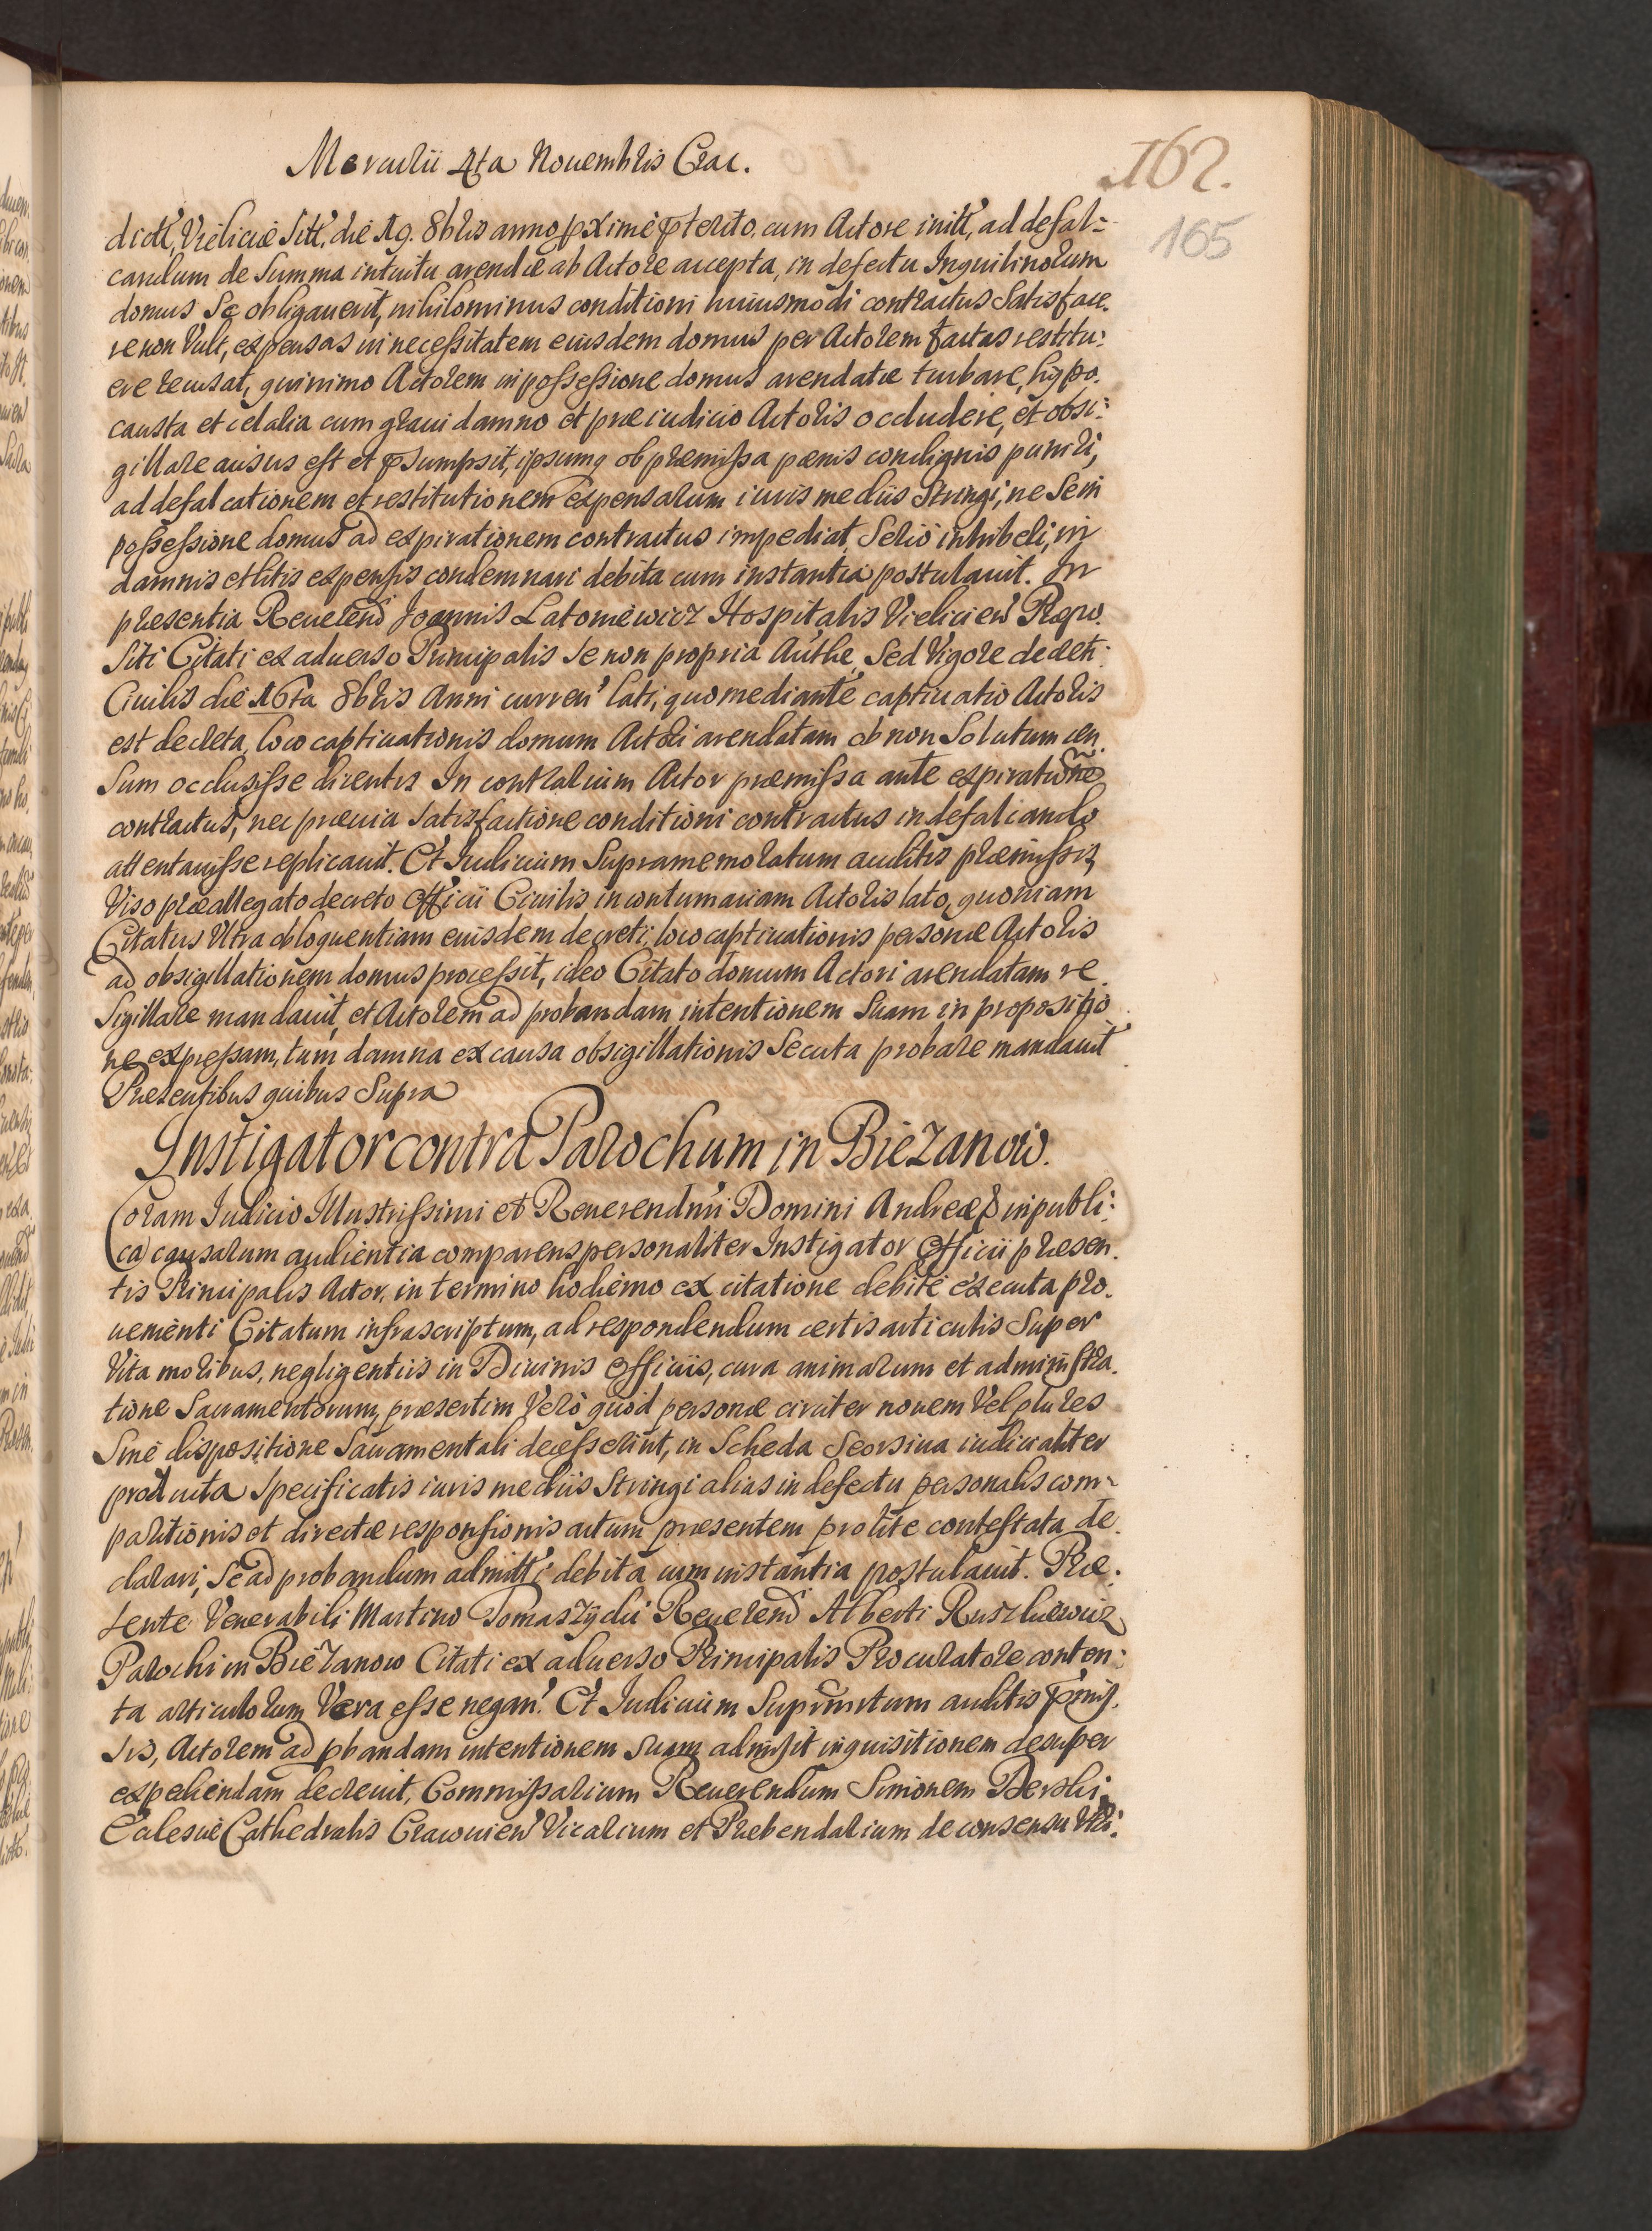 Mercurii 4ta Nouembris Crac.
162.
165
dictt, Vieliciæ Sitt, die 19. 8bris anno pxime pterito, cum Actore initt, ad defal=
candum de Summa intuitu arendæ ab Actore accepta, in defectu Inquilinorum
domus Se obligauerit, nihilominus conditioni huiusmodi contractus Satisface.
re non Vult, expensas in necessitatem eiusdem domus per Actorem factas restitu:
ere recusat, quinimo Actorem in possessione domus arendatæ turbare, hypo.
causta et celaria cum graui damno et præiudicio Actoris occludere, et obsi:
gillare ausus est et psumpsit, ipsumq ob præmissa pænis condignis puniri,
ad defalcationem et restitutionem expensarum iuris mediis Stringi, ne Se in
possessione domus ad expirationem contractus impediat, Serio inhiberi, in
damnis et litis expensis condemnari debita cum instantia postulauit. In
præsentia Reuerend Joannis Latomiewicz Hospitalis Vielicien Præpo.
Siti Citati ex aduerso Principalis Se non propria Authe, Sed Vigore decreti
Ciuilis die 16ta 8bris Anni curren lati, quo mediante captiuatio Actoris
est decreta, loco captiuationis domum Actori arendatam ob non Solutum cen.
Sum occlusisse dicentis In contrarium Actor præmissa ante expiratione
contractus, nec præuia Satisfactione conditioni contractus in defalcando
attentauisse replicauit. Et Iudicium Supramemoratum auditis præmissis,
Viso præallegato decreto Officii Ciuilis in contumaciam Actoris lato, quoniam
Citatus Ultra obloquentiam eiusdem decreti, loco captiuationis personæ Actoris
ad obsigillationem domus processit, ideo Citato domum Actori arendatam re.
Sigillare mandauit, et Actorem ad probandam intentionem Suam in propositio
ne expressam, tum damna ex causa obsigillationis Secuta probare mandauit
Præsentibus quibus Supra
Instigator contra Parochum in Bieżanow.
Coram Iudicio Illustrissimi et Reuerendmi Domini Andreæ in publi:
ca causarum audientia comparens personaliter Instigator Officii præsen.
tis Principalis Actor, in termino hodierno ex citatione debite executa pro.
uenienti Citatum infrascriptum, ad respondendum certis articulis Super
Vita moribus, negligentiis in Diuinis Officiis, cura animarum et administra.
tione Sacramentorum, præsertim Verò quod personæ circiter nouem Vel plures
Sine dispositione Sacramentali decesserint, in Scheda Seorsiua iudicialiter
producta Specificatis iuris mediis Stringi alias in defectu personalis com=
paritionis et directæ responsionis actum præsentem pro lite contestata de.
clarari, Se ad probandum admitti debita cum instantia postulauit. Præ.
sente Venerabili Martino Tomaszycki Reuerend Alberti Ruszkiewicz
Parochi in Bieżanow Citati ex aduerso Principalis Procuratore conten:
ta articulorum Vera esse negan. Et Iudicium Suprmrtum auditis pmis.
sis, Actorem ad pbandam intentionem Suam admisit inquisitionem desuper
expediendam decreuit, Commissarium Reuerendum Simonem Derski
Ecclesiæ Cathedralis Cracouien Vicarium et Præbendarium de consensu Utri: